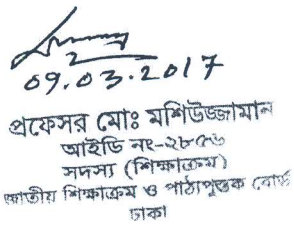 09.03.2017
প্রফেসর মোঃ মশিউজ্জামান
আইডি নং-২৮৫৬
সদস্য (শিক্ষাক্রম)
জাতীয় শিক্ষাক্রম ও পাঠ্যপুস্তক বোর্ড
ঢাকা